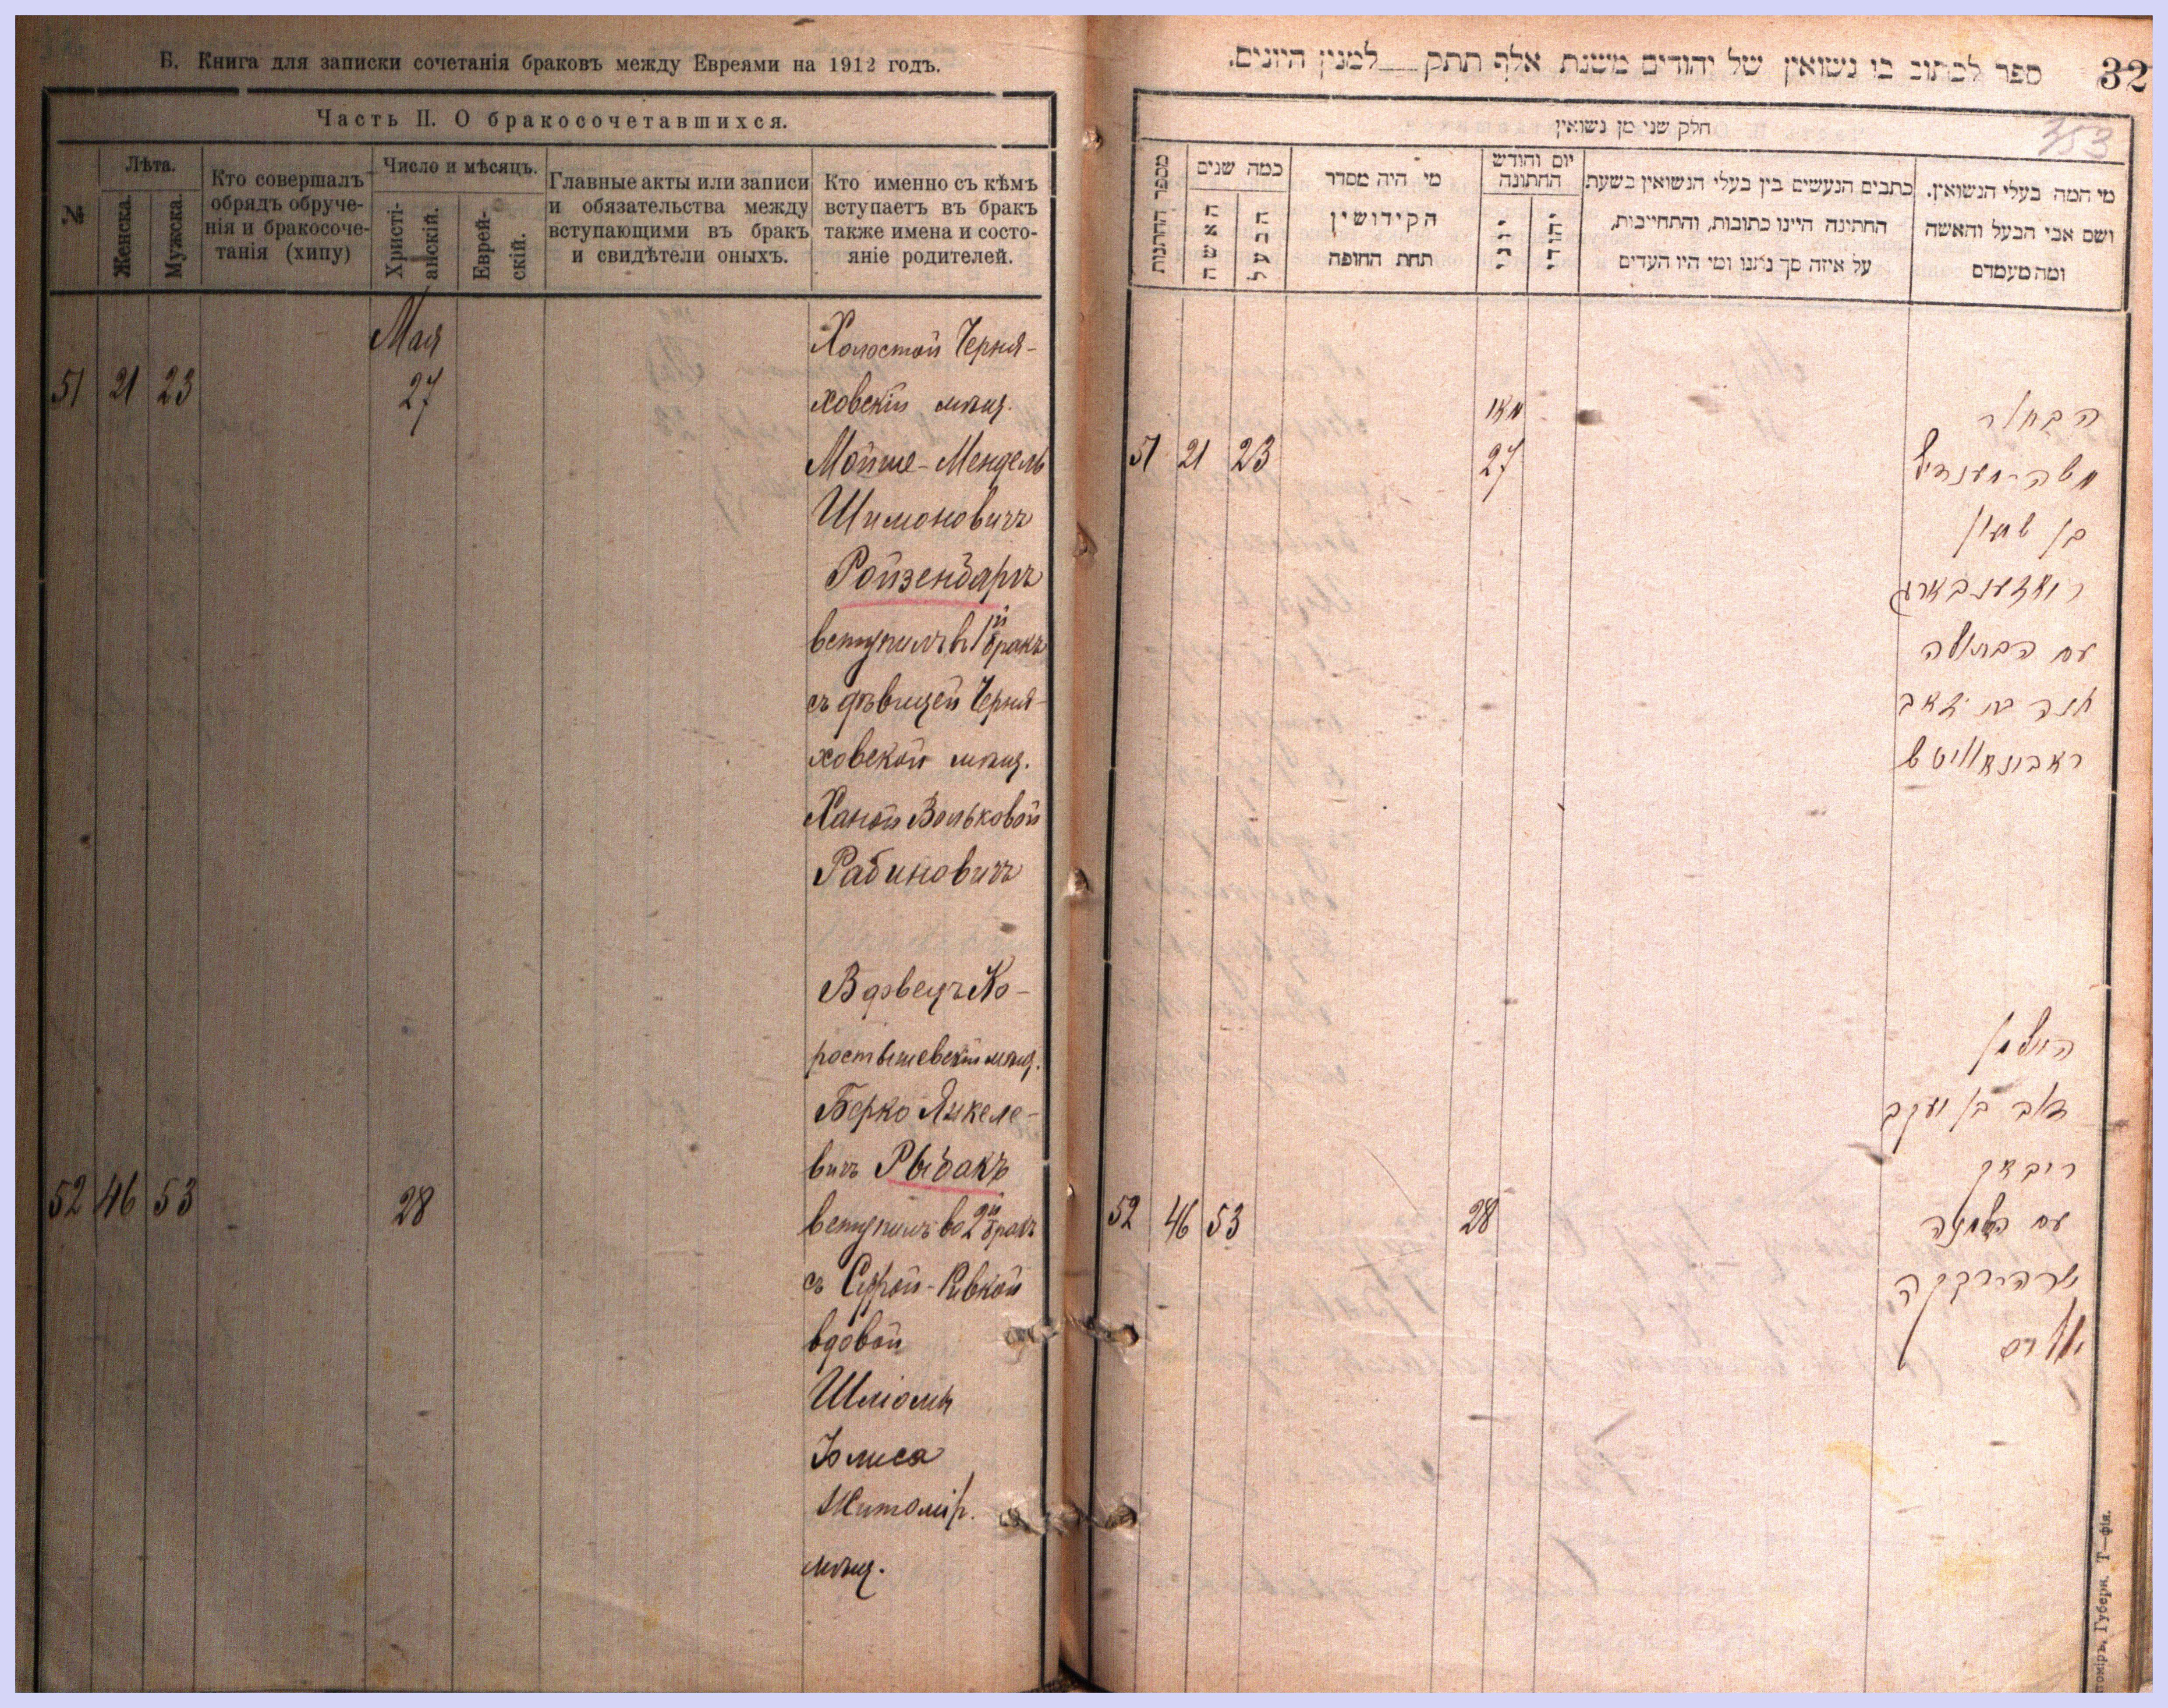 Б. Книга для записки сочетанія браковъ между Евреями на 1912 годъ.
Часть II. О бракосочетавшихся.
№
Лѣта.
Женска.
Мужска.
Кто совершалъ
обрядъ обруче-
нія и бракосоче-
танія (хипу)
Число и мѣсяцъ.
Христі-
анскій.
Еврей-
скій.
Главные акты или записи
и обязательства между
вступающими въ бракъ
и свидѣтели оныхъ.
Кто именно съ кѣмъ
вступаетъ въ бракъ
также имена и состо-
яніе родителей.
Мая
51 21 23 27
Холостой Черня-
ховскій мѣщ.
Мойше-Мендель
Шимоновичъ
Ройзенбаргъ
вступилъ въ 1й бракъ
съ дѣвицей Черня-
ховской мѣщ.
Ханой Вольковой
Рабиновичъ
52 46 53 28
Вдовецъ Ко-
ростышевскій мѣщ.
Берко Янкеле-
вичъ Рыбакъ
вступилъ во 2й бракъ
съ Сурой-Ривкой
вдовой
Шліомы
Юлиса
Житомір.
мѣщ.
ספר לכתוב בו נשואין של יהודים משנת אלף תתק למנין היונים.
32
353
חלק שני מן נשואין
מספר החתנות
כמה שנים
האשה
הבעל
מי היה מסדר
הקידושין
תחת החופה
יום וחודש
החתונה
יוני
יהודי
כתבים הנעשים בין בעלי הנשואין בשעת
החתינה היינו כתובות, והתחייבות,
על איזה סך נתנו ומי היו העדים
מי המה בעלי הנשואין.
ושם אבי הבעל והאשה
ומה מעמדם
מאי
51 21 23 27
הבחור
משה-מענדיל
בן שמעון
רויזענבארג
עם הבתולה
חנה בת זאב
ראבינאוויטש
52 46 53 28
האלמן
בן יעקב
ריבאק
עם האלמנה
שרה רבקה
יוליס
Губерн. Т—фія.